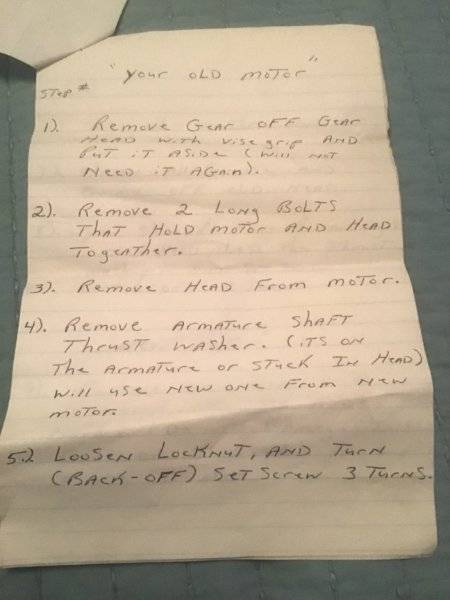 "Your OLD MOTOR"
Step #
1). Remove Gear OFF Gear
HEAD with visegrip AND
Put iT ASIDE (Will NOT
NEED iT AGAin).
2). Remove 2 Long BOLTS
THAT HOLD MOTOR AND HEAD
Togeather.
3). Remove HEAD From MOTOR.
4). Remove ARMATure SHAFT
THruST WASHer. (iTS ON
The ArmATure or STuck In HEAD)
Will use NEW ONE From NEW
MOTOR.
5.) LOOSEN LOCKNUT, AND Turn
(BACK-OFF) SET Screw 3 TurnS.